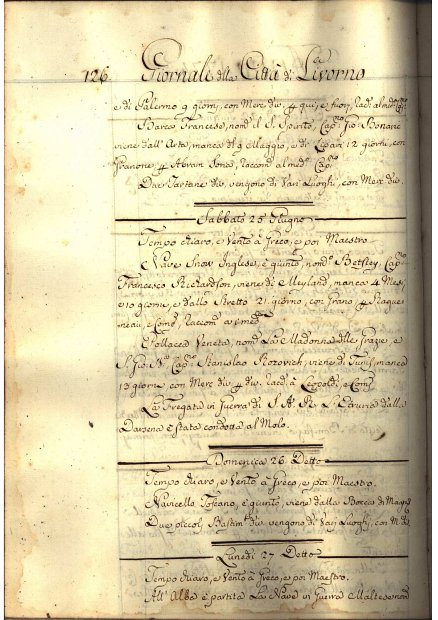 126. Giornale della Città di Livorno
e di Palermo 9 giorni, con Merc. div. p. qui, e fuori, racc. al med.º Cap.º
Barca Francese, nom. il S. Spirito, Cap.º Gio. Bonavie
viene dall' Arta, manca di 9 Maggio, e di 12 giorni, con
Granone p. Abram Sonsi, raccom. al med. Cap.º
Due Tartane div. vengono di Vari Luoghi, con Merc. div.
Sabbato 25 Giugno
Tempo chiaro, e Vento à Greco, e poi Maestro
Nave Snow Inglese, è giunta, nom.º Betsley, Cap.º
Francesco Richardson, viene di Meyland, manca 4 Mesi,
e 10 giorni, e dallo Stretto 21 giorno, con Grano, p. Rague
neau, e Comp. raccom. a i med.ⁱ
Pollacca Veneta, nom. La Madonna delle Grazie, e
S. Gio. N.º Cap.º Stanislao Rozovich, viene di Tunis manca
13 giorni con Merc. div. p. div. racc. à Leopoldi, e Comp.
La Fregata in Guerra di S. A. R. L'Etruria dalla
Darsena è stata condotta al Molo.
Domenica 26 Detto
Tempo chiaro, e Vento à Greco, e poi Maestro.
Navicello Toscano, è giunto, viene dalla Bocca di Magra
Due piccoli Bastim. div. vengono di Varj Luoghi, con M. div.
Lunedì 27 Detto
Tempo chiaro, e Vento à Greco, e poi Maestro.
All' Alba è partita La Nave in Guerra Maltese nom